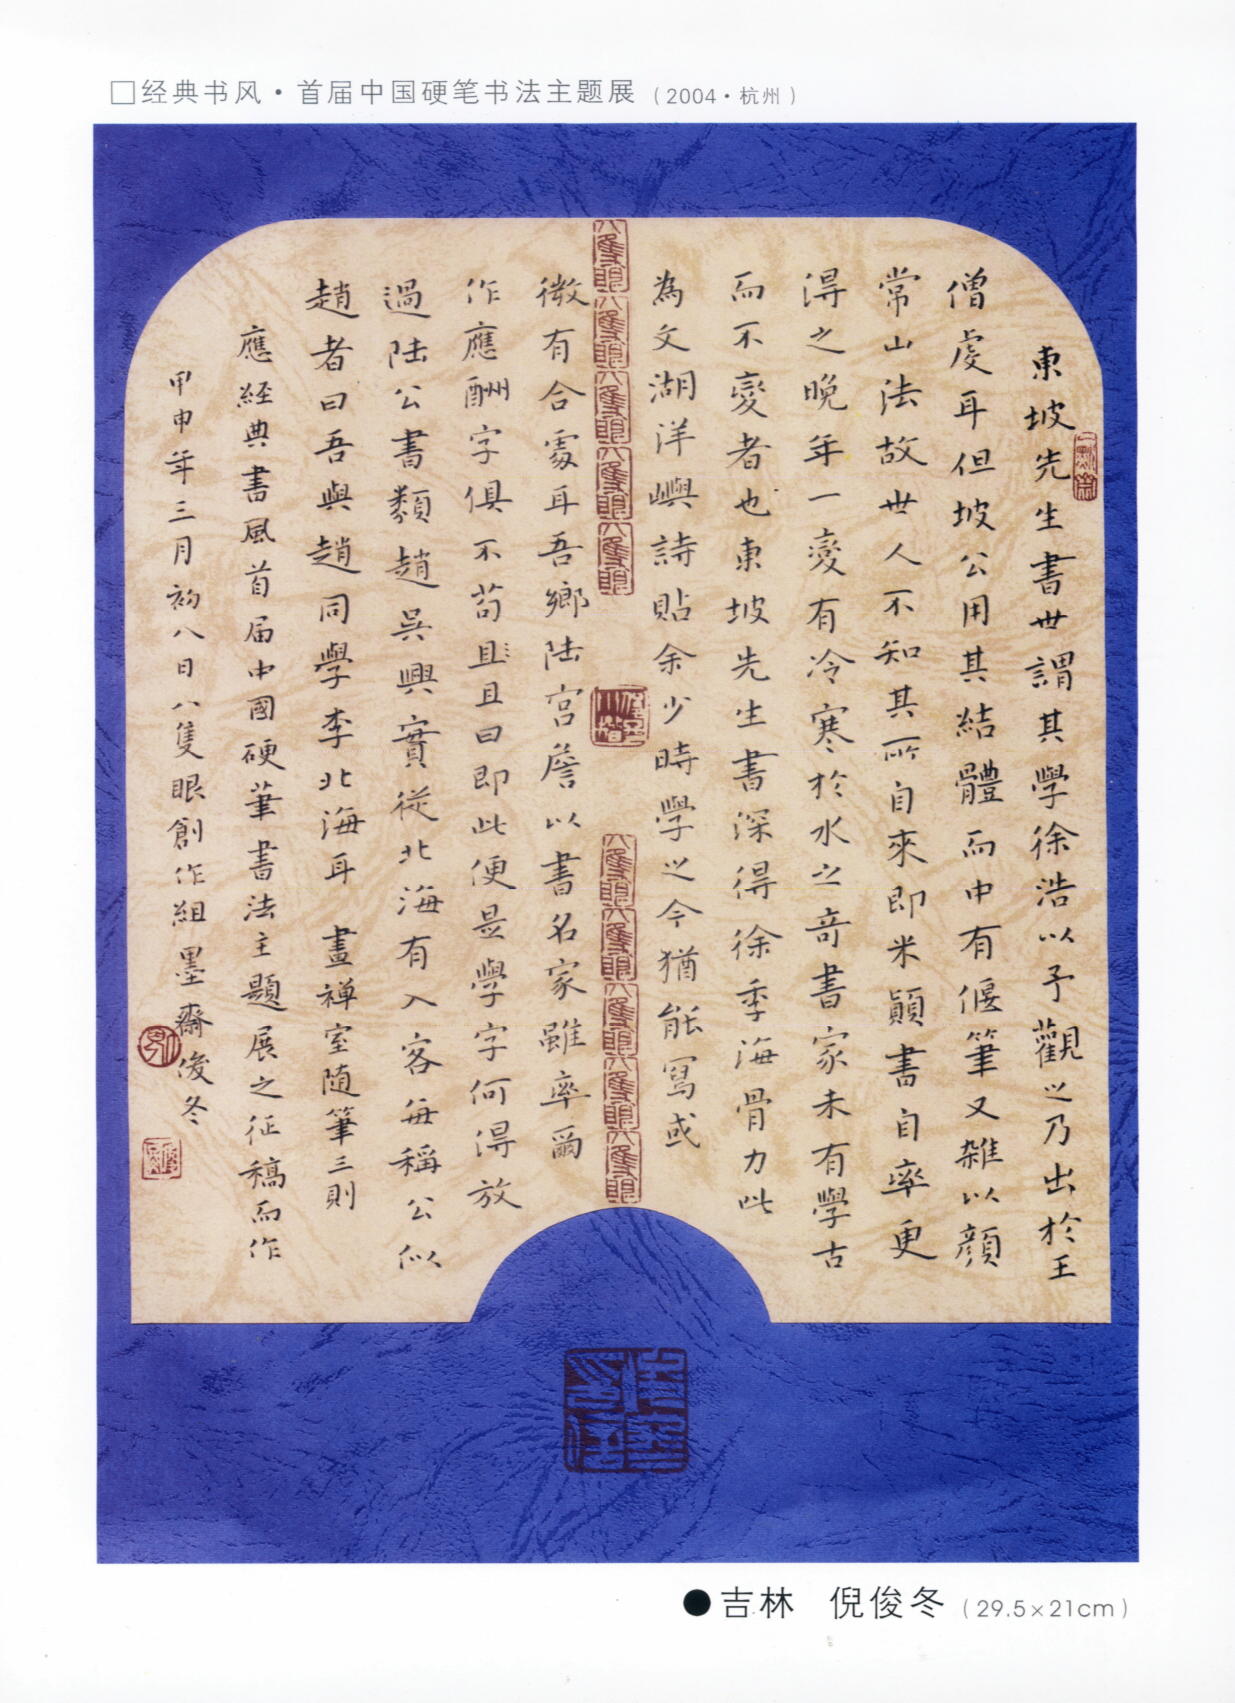 □经典书风·首届中国硬笔书法主题展（2004·杭州）
東坡先生書世謂其學徐浩以予觀之乃出於王
僧虔耳但坡公用其結體而中有偃筆又雜以顔
常山法故世人不知其所自來即米顛書自率更
得之晚年一變有冷寒於水之奇書家未有學古
而不變者也東坡先生書深得徐季海骨力此
為文湖洋嶼詩貼余少時學之今猶能寫或
微有合處耳吾鄉陸宫詹以書名家雖率爾
作應酬字俱不苟且且曰即此便是學字何得放
過陸公書類趙吳興實從北海有入客每稱公似
趙者曰吾與趙同學李北海耳 畫禅室随筆三則
應經典書風首届中國硬筆書法主題展之征稿而作
甲申年三月初八日八隻眼創作組墨齋俊冬
八隻眼八隻眼八隻眼八隻眼八隻眼
八隻眼八隻眼八隻眼八隻眼八隻眼
●吉林 倪俊冬（29.5×21cm）